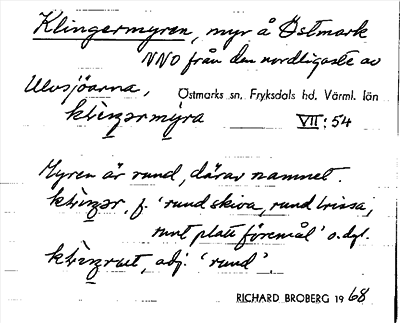 Klingermyren, myr å Östmark
NNO från den nordligaste av
Ulvsjöarna, Östmarks sn, Fryksdals hd. Värml. län
VII: 54
Myren är rund, därav namnet.
f. 'rund skiva, rund trissa,
runt platt föremål' o. dyl.
adj. 'rund'
RICHARD BROBERG 1968